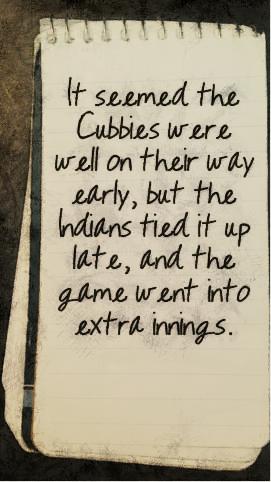 It seemed the
Cubbies were
well on their way
early, but the
Indians tied it up
late, and the
game went into
extra innings.